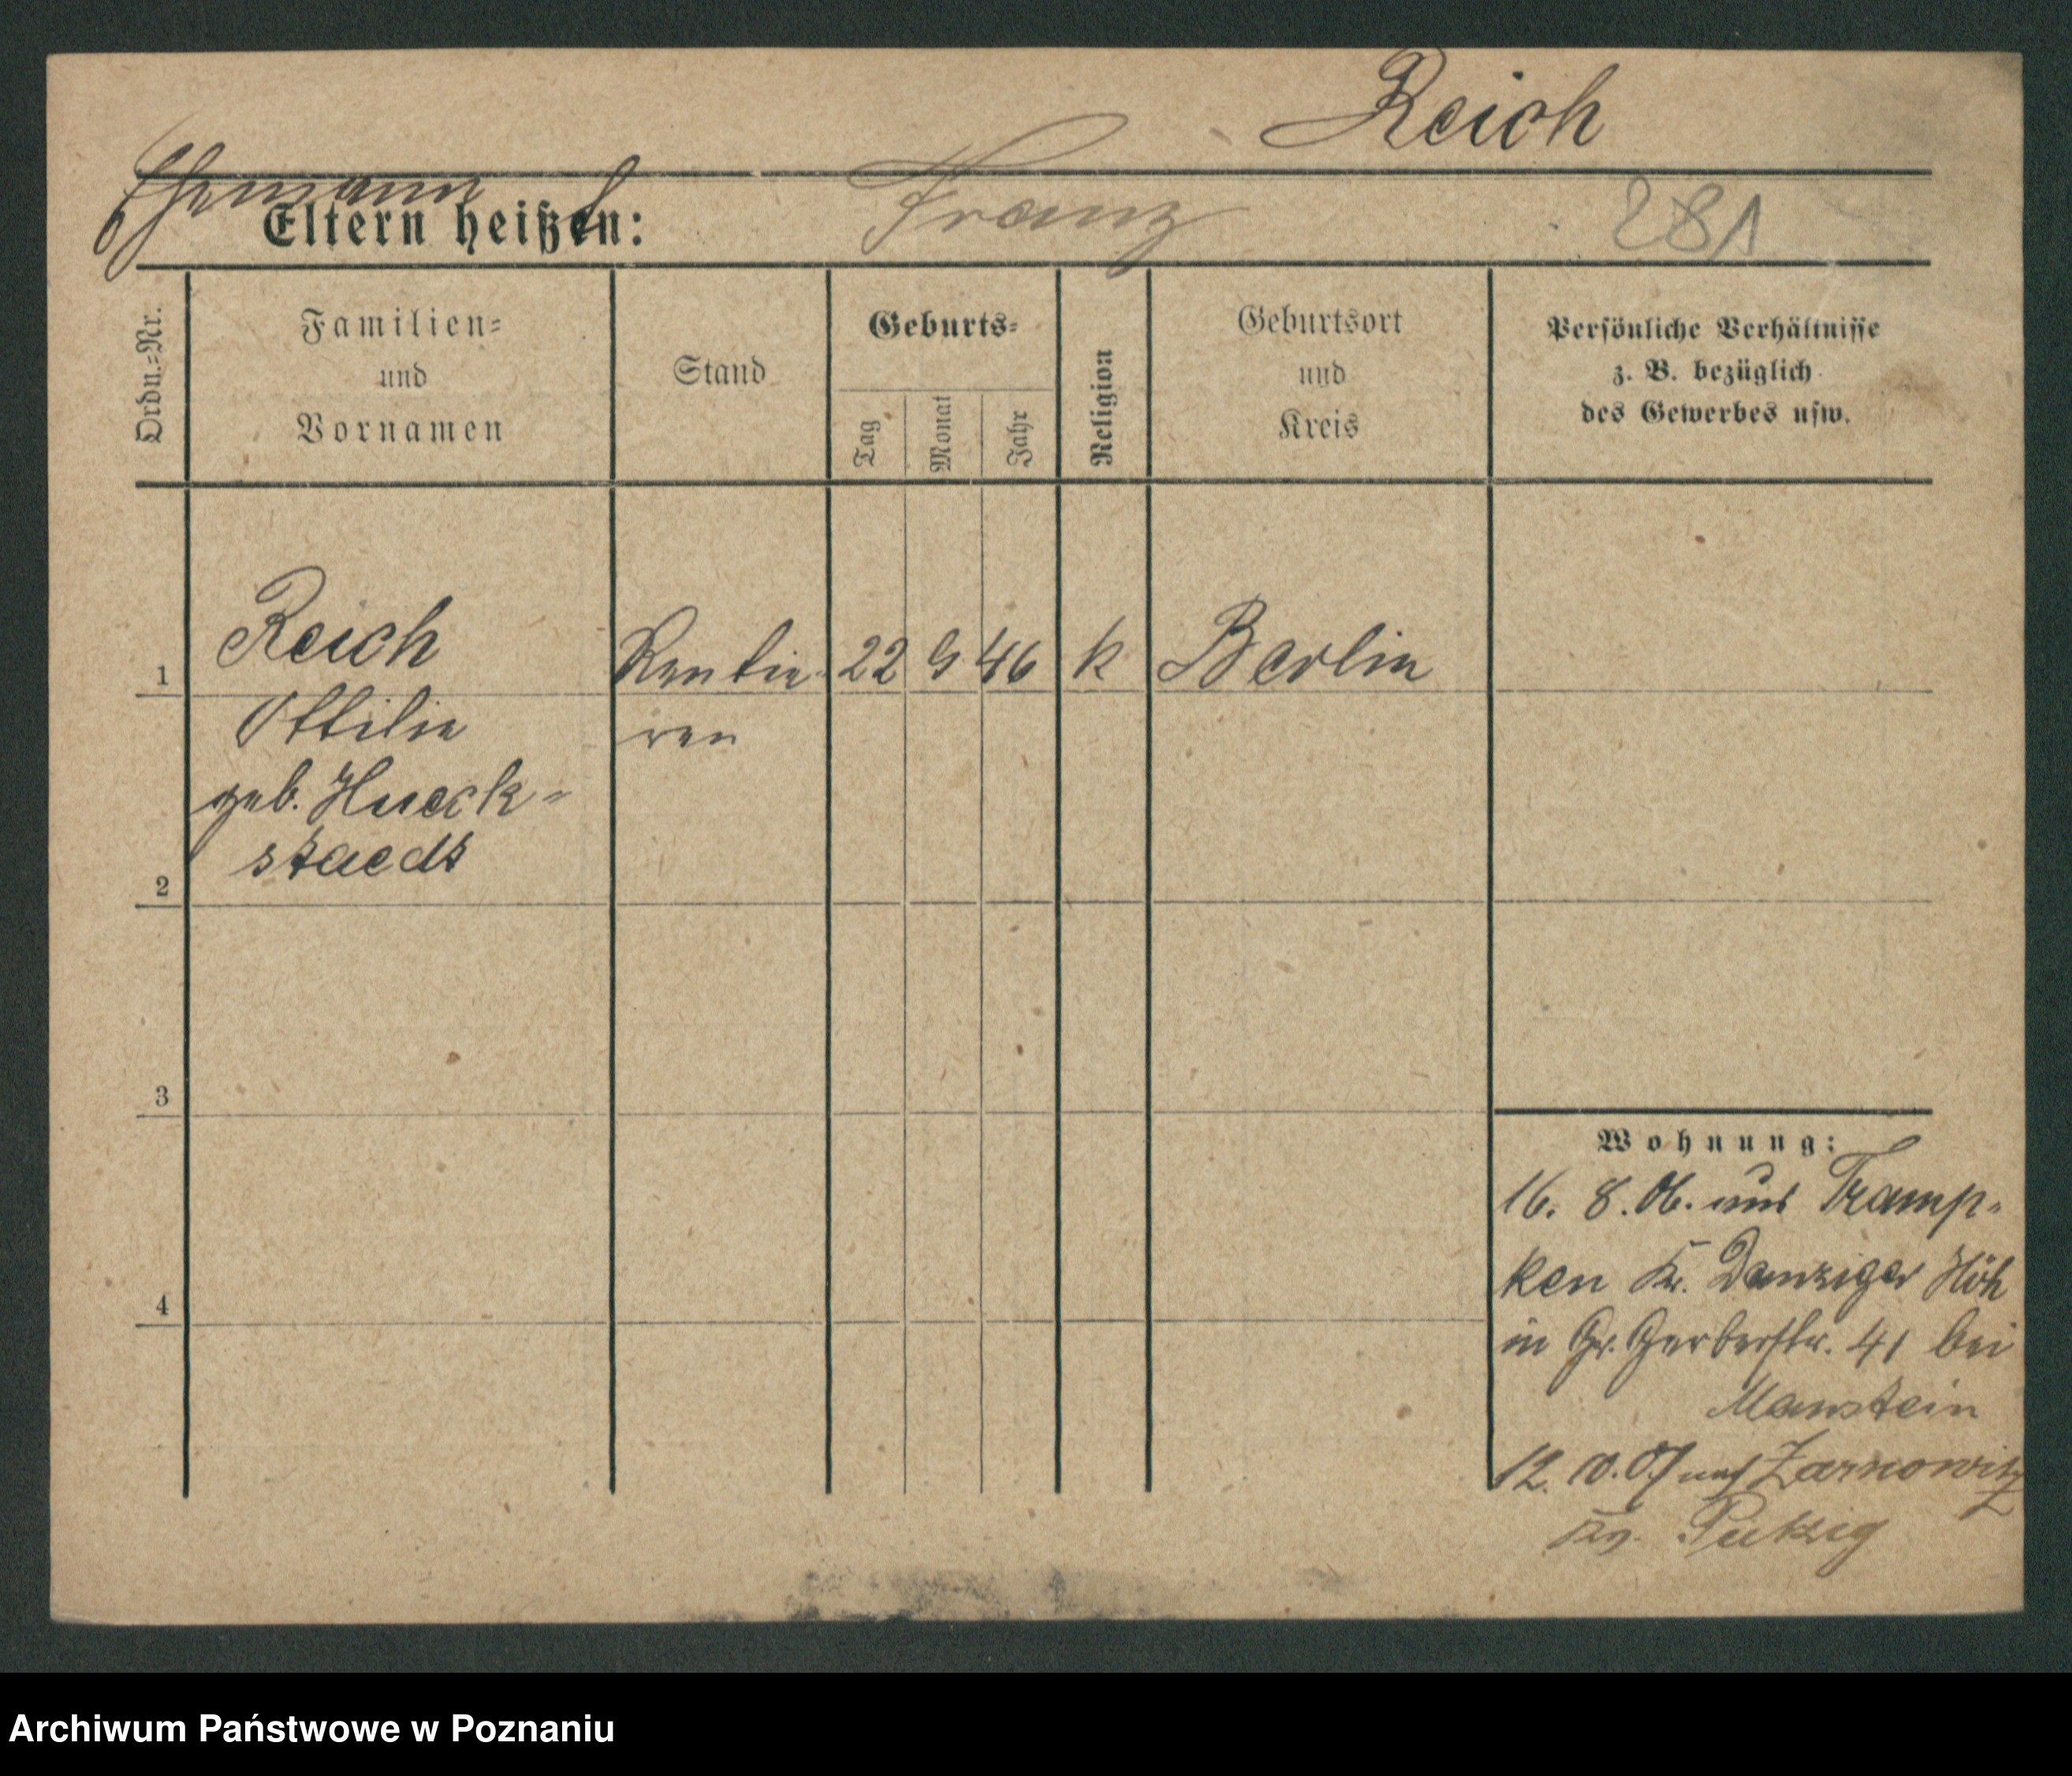 Reich
Ehemann
Eltern heißen: Franz 281
Ordn.-Nr.
Familien-
und
Vornamen
Stand
Geburts-
Tag
Monat
Jahr
Religion
Geburtsort
und
Kreis
Persönliche Verhältnisse
z. B. bezüglich
des Gewerbes usw.
1 Reich Rentie- 22 9 46 k Berlin
Ottilie ren
geb. Hueck-
2 staedt
3
4
Wohnung:
16. 8. 06. aus Tramp-
ken Kr. Danziger Höh
in Gr. Gerberstr. 41 bei
Manstein
12. 10. 07 nach Zarnowitz
Kr. Putzig
Archiwum Państwowe w Poznaniu